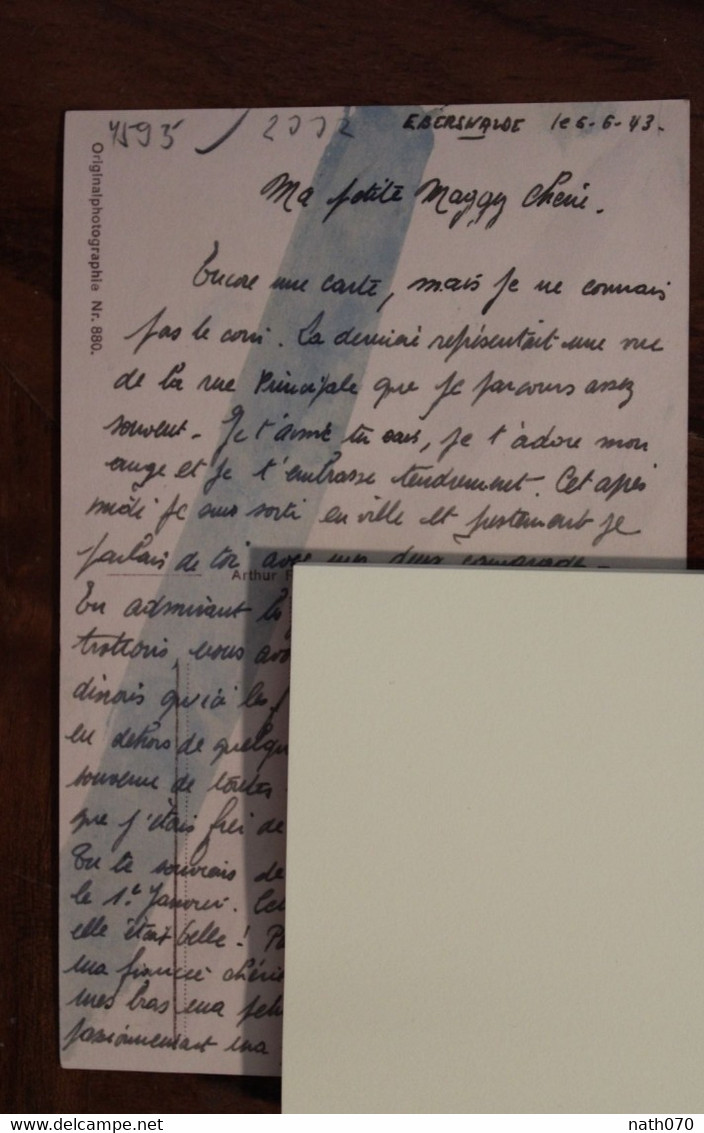 4595 / 2002
EBERSWALDE le 6-6-43-
Originalphotographie Nr. 880.
Ma petite Maggy Chérie.
Encore une carte, mais je ne connais
pas le coin. La dernière représentait une vue
de la rue Principale que je parcours assez
souvent. Je t'aime tu sais, je t'adore mon
ange et je t'embrasse tendrement. Cet après
midi je suis sorti en ville et justement je
parlais de toi avec mes deux camarades.
Arthur
En admirant les
trottoirs, nous
disions qu'ici les
en dehors de quelqu
souvenir de toutes
que j'étais fier de
Tu te souviens de
le 1er Janvier.
elle était belle !
ma fiancée chérie
mes bras ma
passionnément ma
nath070